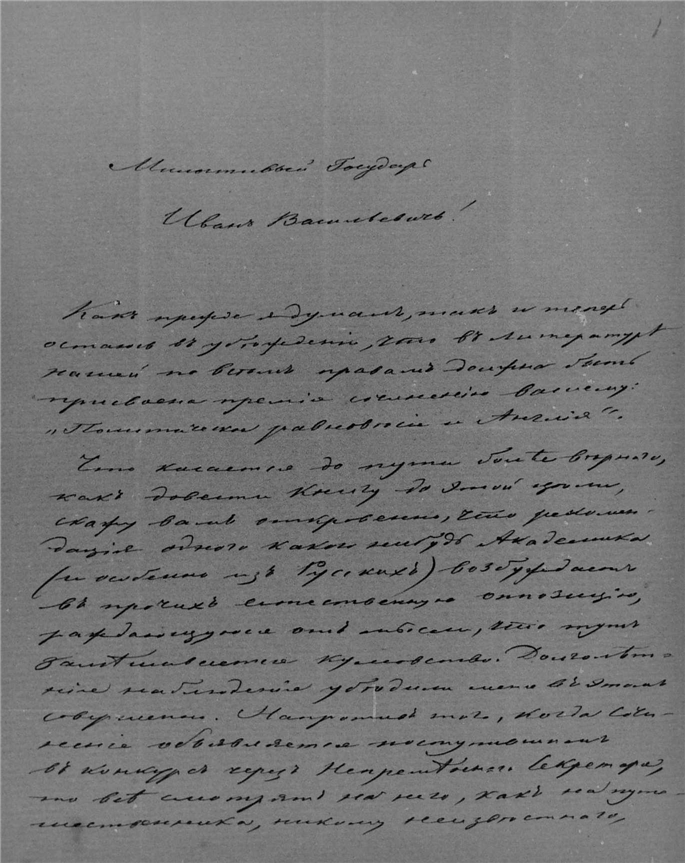 1
Милостивый Государь
Иванъ Васильевичъ!
Какъ прежде я думалъ, такъ и теперь
остаюсь въ убѣжденіи, что въ литературѣ
нашей по всѣмъ правамъ должна быть
присвоена премія сочиненію вашему:
„Политическое равновѣсіе и Англія“.
Что касается до пути болѣе вѣрнаго,
какъ довести книгу до этой цѣли,
скажу вамъ откровенно, что рекомен-
дація одного какого нибудь Академика
(и особенно изъ Русскихъ) возбуждаетъ
въ прочихъ естественную оппозицію,
раждающуюся отъ мысли, что тутъ
замѣшивается кумовство. Долголѣт-
ніе наблюденія убѣдили меня въ этомъ
совершенно. Напротивъ того, когда сочи-
неніе объявляется поступившимъ
въ конкурсъ черезъ Непремѣннаго Секретаря,
то всѣ смотрятъ на него, какъ на путе-
шественника, никому неизвѣстнаго,